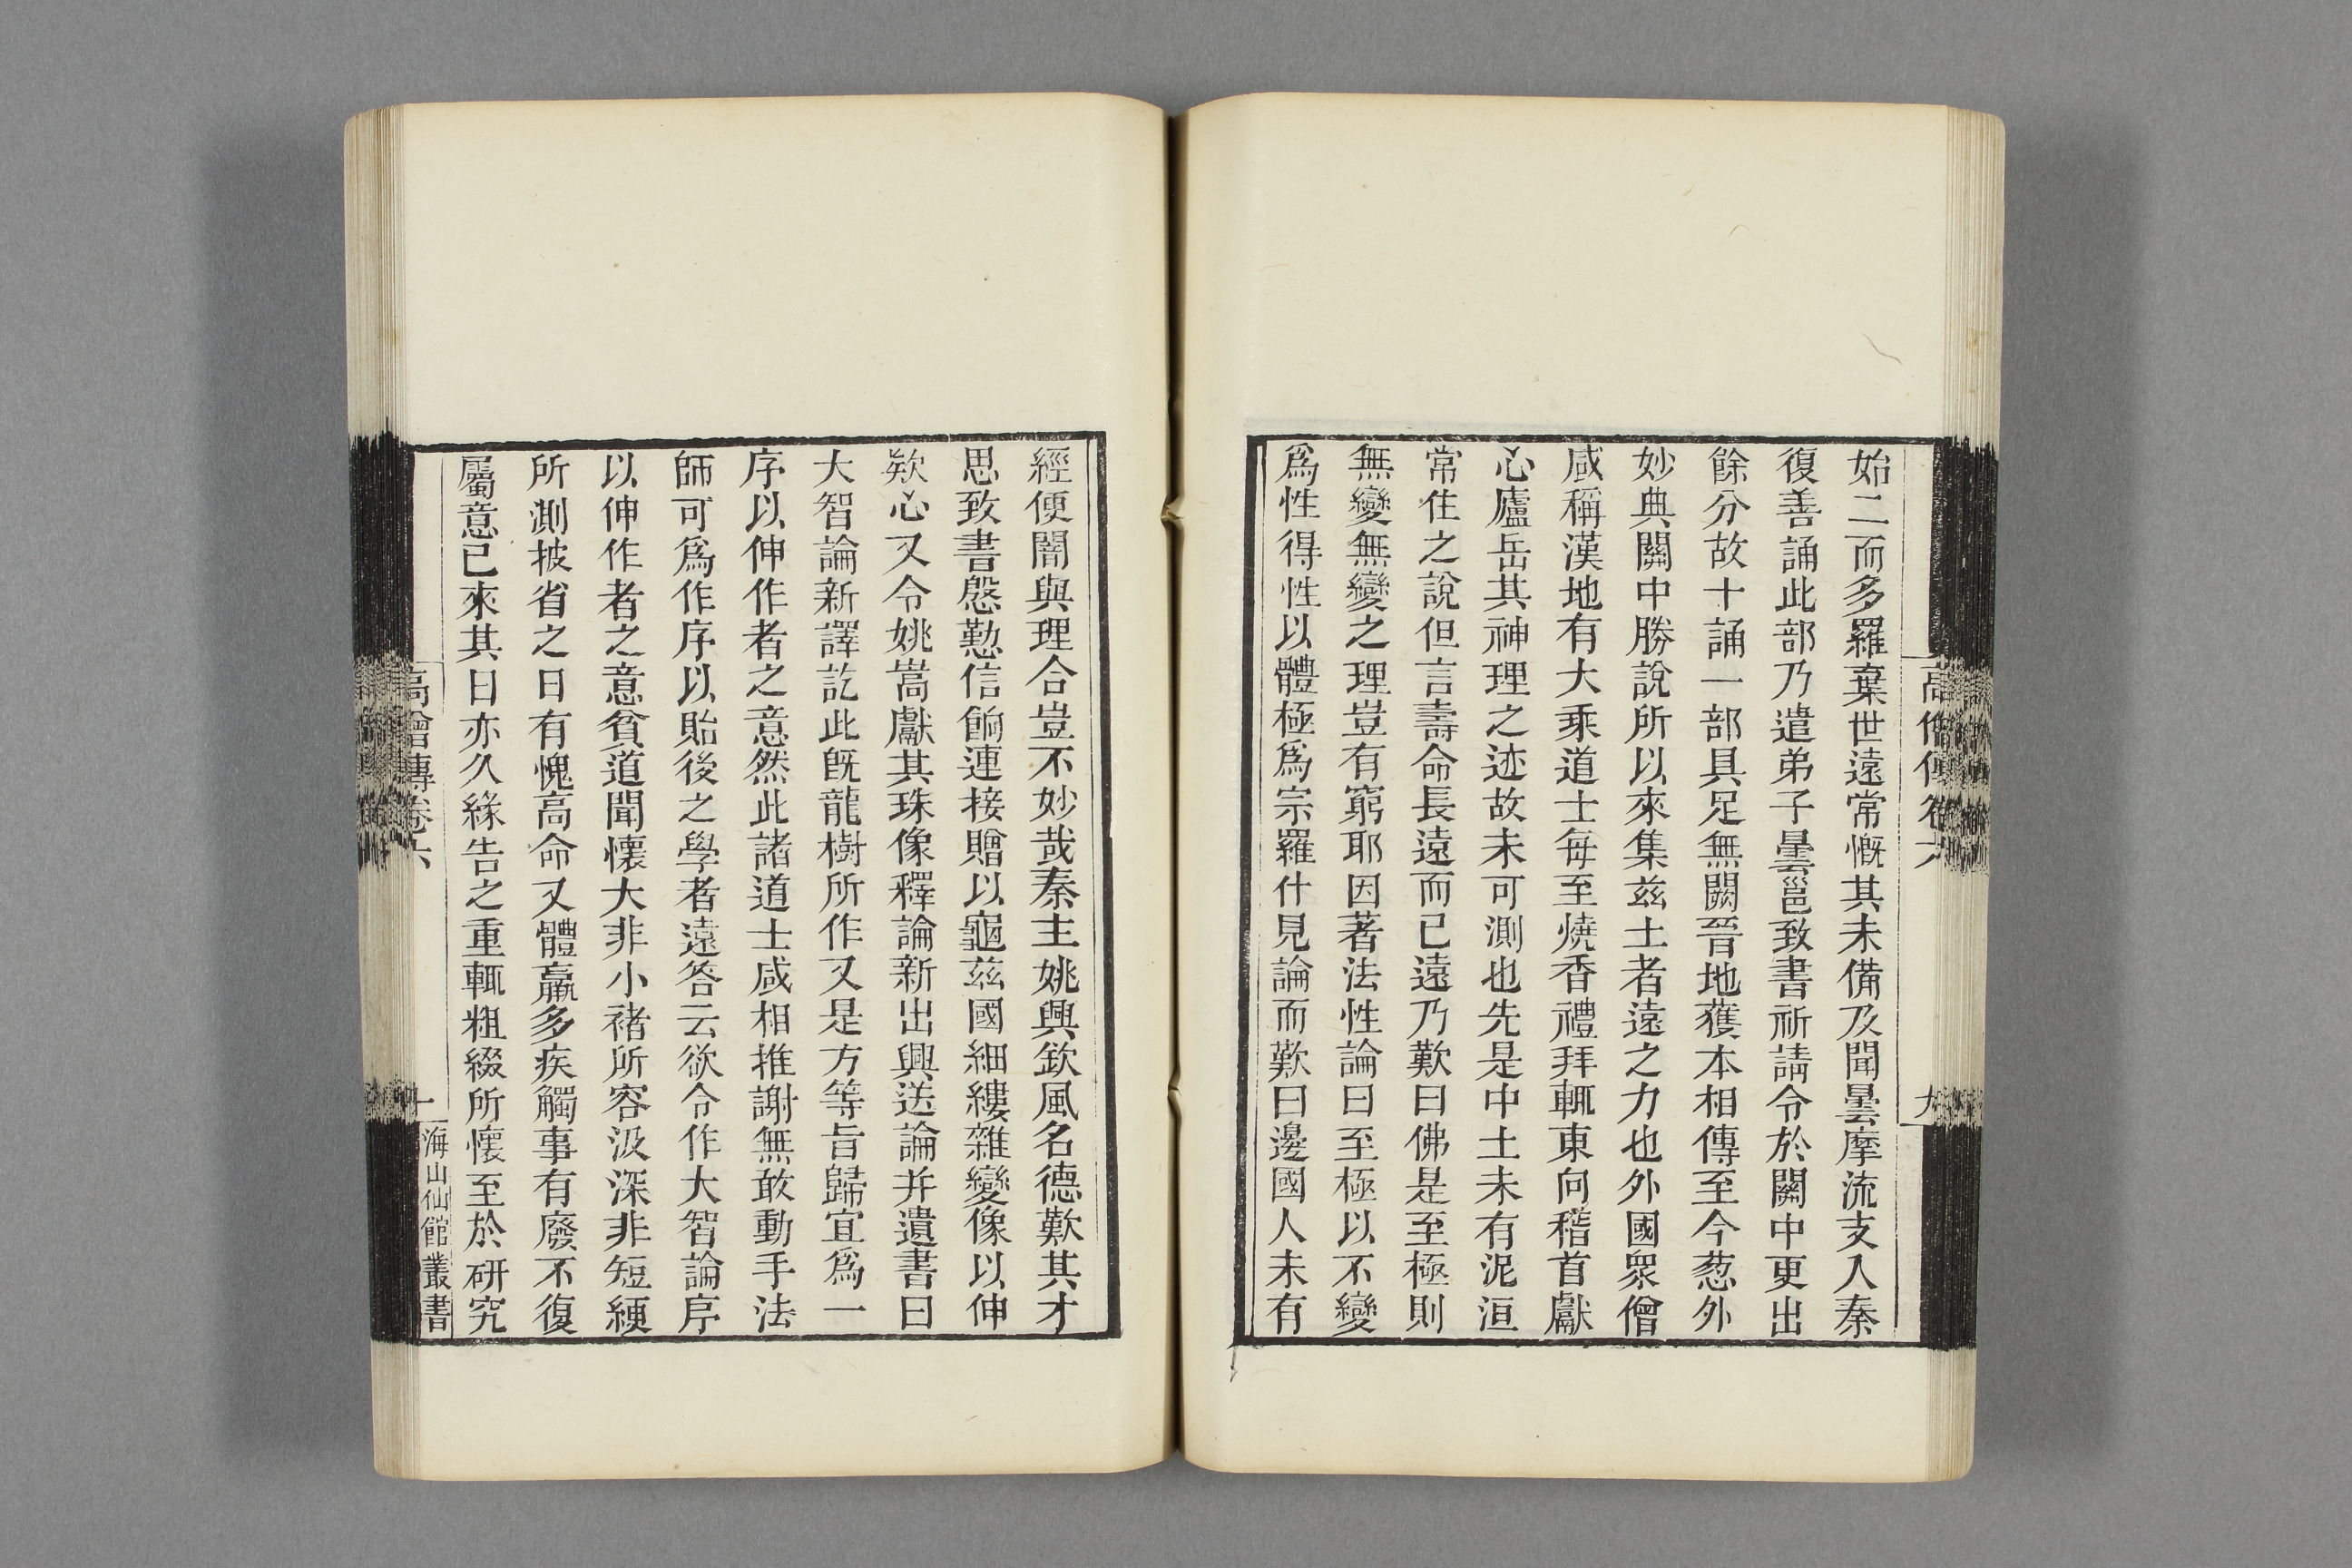 高僧傳卷六
九
始二而多羅棄世遠常慨其未備及聞曇摩流支入秦
復善誦此部乃遣弟子曇邕致書祈請令於關中更出
餘分故十誦一部具足無闕晉地獲本相傳至今葱外
妙典關中勝說所以來集茲土者遠之力也外國衆僧
咸稱漢地有大乘道士每至燒香禮拜輒東向稽首獻
心廬岳其神理之迹故未可測也先是中土未有泥洹
常住之說但言壽命長遠而已遠乃歎曰佛是至極則
無變無變之理豈有窮耶因著法性論曰至極以不變
爲性得性以體極爲宗羅什見論而歎曰邊國人未有
經便闇與理合豈不妙哉秦主姚興欽風名德歎其才
思致書慇懃信餉連接贈以龜茲國細縷雜變像以伸
欵心又令姚嵩獻其珠像釋論新出興送論并遺書曰
大智論新譯訖此旣龍樹所作又是方等旨歸宜爲一
序以伸作者之意然此諸道士咸相推謝無敢動手法
師可爲作序以貽後之學者遠答云欲令作大智論序
以伸作者之意貧道聞懷大非小褚所容汲深非短綆
所測披省之日有愧高命又體羸多疾觸事有廢不復
屬意已來其日亦久緣告之重輒粗綴所懷至於研究
高僧傳卷六
海山仙館叢書